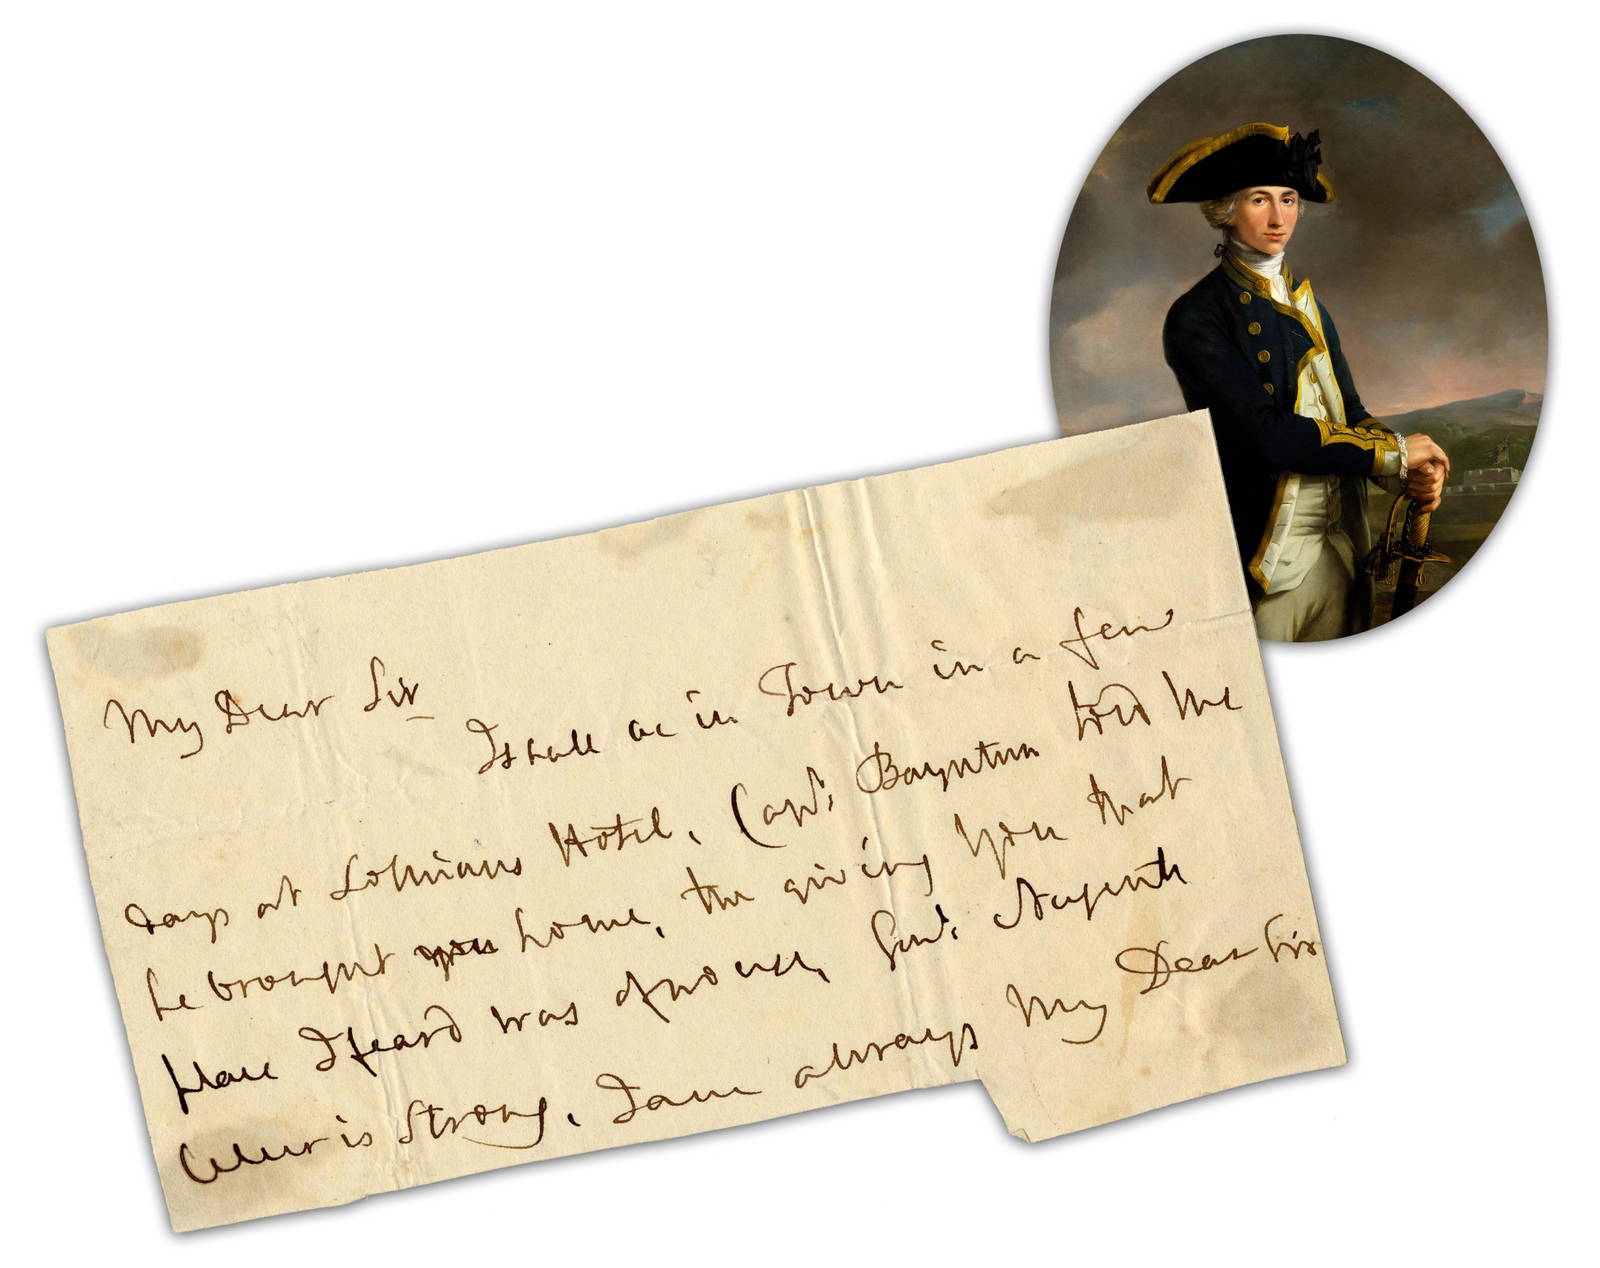 My Dear Sir
I shall be in Town in a few
days at Lothians Hotel, Capt: Bayntun told me
he brought you home, the giving you that
place I feard was of no use, Genl: Nugents
letter is strong, I am always My Dear Sir